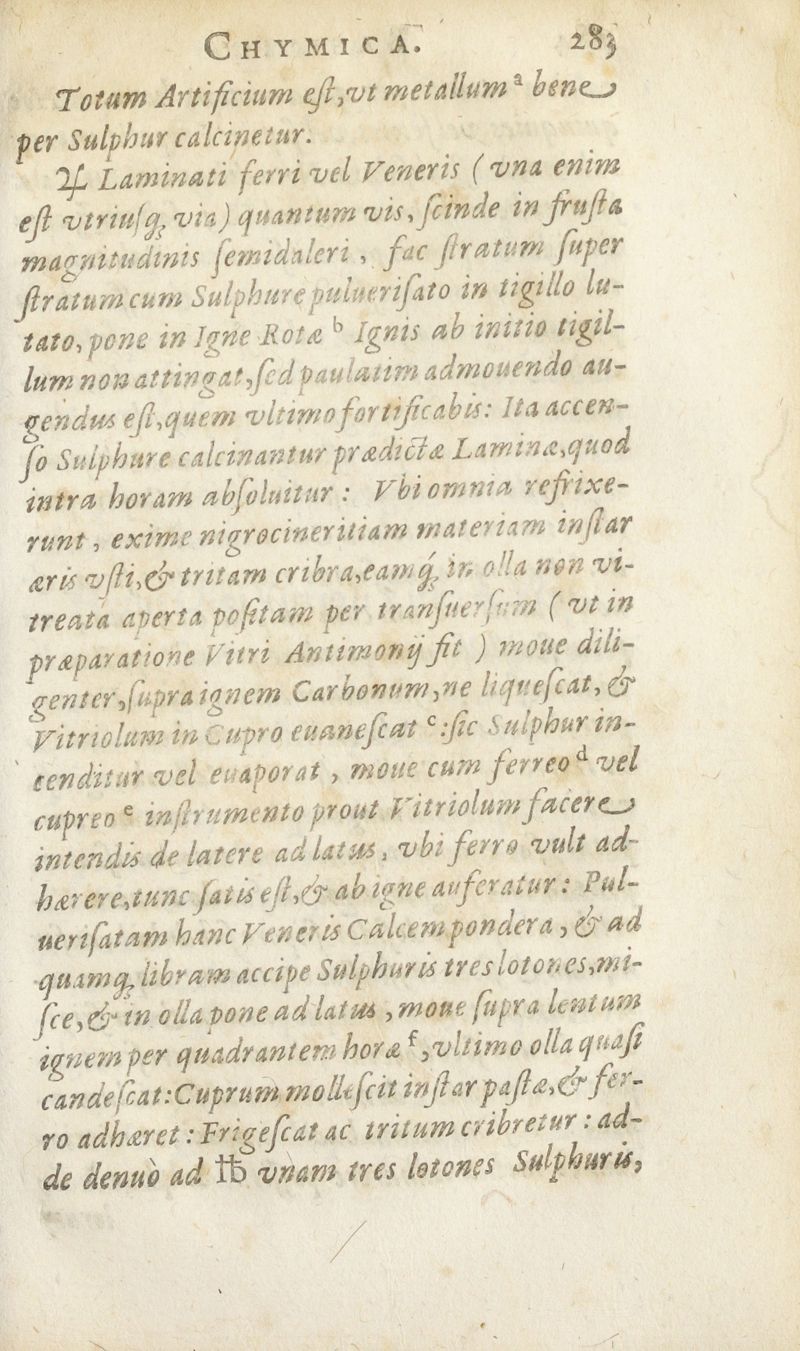 CHYMICA. 283
Totum Artificium eſt, vt metallum ᵃ bene
per Sulphur calcinetur.
♃ Laminati ferri vel Veneris (vna enim
eſt vtriuſq; via) quantum vis, ſcinde in fruſta
magnitudinis ſemidaleri, fac ſtratum ſuper
ſtratum cum Sulphure pulueriſato in tigillo lu-
tato, pone in Igne Rotæ ᵇ Ignis ab initio tigil-
lum non attingat, ſed paulatim admouendo au-
gendus eſt, quem vltimo fortificabis: Ita accen-
ſo Sulphure calcinantur prædictæ Laminæ, quod
intra horam abſoluitur: Vbi omnia refrixe-
runt, exime nigrocineritiam materiam inſtar
æris vſti, & tritam cribra, eamq́; in olla non vi-
treata aperta poſitam per tranſuerſum (vt in
præparatione Vitri Antimonij fit) moue dili-
genter, ſupra ignem Carbonum, ne liqueſcat, &
Vitriolum in Cupro euaneſcat ᶜ: ſic Sulphur in-
cenditur vel euaporat, moue cum ferreo ᵈ vel
cupreo ᵉ inſtrumento prout Vitriolum facere
intendis de latere ad latus, vbi ferro vult ad-
hærere, tunc ſatis eſt, & ab igne auferatur: Pul-
ueriſatam hanc Veneris Calcem pondera, & ad
quamq; libram accipe Sulphuris tres lotones, mi-
ſce, & in olla pone ad latus, moue ſupra lentum
ignem per quadrantem horæ ᶠ, vltimo olla quaſi
candeſcat: Cuprum molleſcit inſtar paſtæ, & fer-
ro adhæret: Frigeſcat ac tritum cribretur: ad-
de denuò ad ℔ vnam tres lotones Sulphuris,